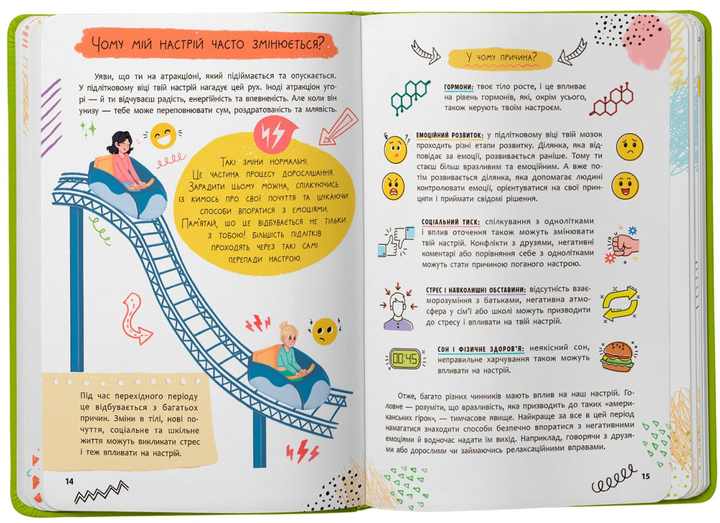 Чому мій настрій часто змінюється?
Уяви, що ти на атракціоні, який підіймається та опускається.
У підлітковому віці твій настрій нагадує цей рух. Іноді атракціон уго-
рі — й ти відчуваєш радість, енергійність та впевненість. Але коли він
унизу — тебе може переповнювати сум, роздратованість та млявість.
Такі зміни нормальні.
Це частина процесу дорослішання.
Зарадити цьому можна, спілкуючись
із кимось про свої почуття та шукаючи
способи впоратися з емоціями.
Пам'ятай, що це відбувається не тільки
з тобою! Більшість підлітків
проходять через такі самі
перепади настрою.
Під час перехідного періоду
це відбувається з багатьох
причин. Зміни в тілі, нові по-
чуття, соціальне та шкільне
життя можуть викликати стрес
і теж впливати на настрій.
14
У чому причина?
ГОРМОНИ: твоє тіло росте, і це впливає
на рівень гормонів, які, окрім усього,
також керують твоїм настроєм.
ЕМОЦІЙНИЙ РОЗВИТОК: у підлітковому віці твій мозок
проходить різні етапи розвитку. Ділянка, яка від-
повідає за емоції, розвивається раніше. Тому ти
стаєш більш вразливим та емоційним. А вже по-
тім розвивається ділянка, яка допомагає людині
контролювати емоції, орієнтуватися на свої прин-
ципи і приймати свідомі рішення.
СОЦІАЛЬНИЙ ТИСК: спілкування з однолітками
і вплив оточення також можуть змінювати
твій настрій. Конфлікти з друзями, негативні
коментарі або порівняння себе з однолітками
можуть стати причиною поганого настрою.
СТРЕС І НАВКОЛИШНІ ОБСТАВИНИ: відсутність взає-
морозуміння з батьками, негативна атмо-
сфера у сім'ї або школі можуть призводити
до стресу і впливати на твій настрій.
00:45
СОН І ФІЗИЧНЕ ЗДОРОВ'Я: неякісний сон,
неправильне харчування також можуть
впливати на настрій.
Отже, багато різних чинників мають вплив на наш настрій. Го-
ловне — розуміти, що вразливість, яка призводить до таких «амери-
канських гірок», — тимчасове явище. Найкраще за все в цей період
намагатися знаходити способи безпечно впоратися з негативними
емоціями й водночас надати їм вихід. Наприклад, говорячи з друзя-
ми або дорослими чи займаючись релаксаційними вправами.
15